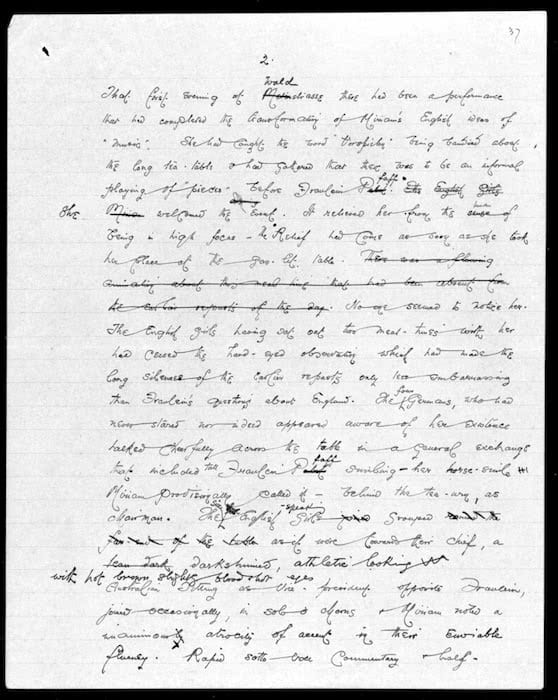 37
2.
Wald
That first evening at Waldstrasse there had been a performance
that had completed the transformation of Miriam's English ideas of
"music". She had caught the word "Vorspielen" being bandied about
the long tea-table & had gathered that there was to be an informal
playing of "pieces" before Fraulein Pfaff. The English Girls
She Miriam welcomed the event. It relieved her from the sense of
being in high focus – the Relief had come as soon as she took
her place at the gas-lit table. There was a flowing
animation about
the earlier reports of the day. No eye seemed to notice her.
The English girls having sat out two meal-times with her
had ceased the hard-eyed observation which had made the
long silence of the earlier repasts only less embarrassing
than Fraulein's questions about England. The four Germans, who had
never stared nor indeed appeared aware of her existence
talked cheerfully across the table in a general exchange
that included Fraulein Pfaff smiling – her horse-smile
Miriam provisionally called it – behind the tea-urn, as
chairman. The six English-speaking Girls grouped
of the table as it were towards their chief, a
lean dark dark-skinned, athletic looking
with hot brown, slightly blood-shot eyes
Australian sitting as Vice-president opposite Fraulein,
joined occasionally, in solo & chorus & Miriam noted a
unanimous atrocity of accent in their enviable
fluency. Rapid sotto voce commentary & half-